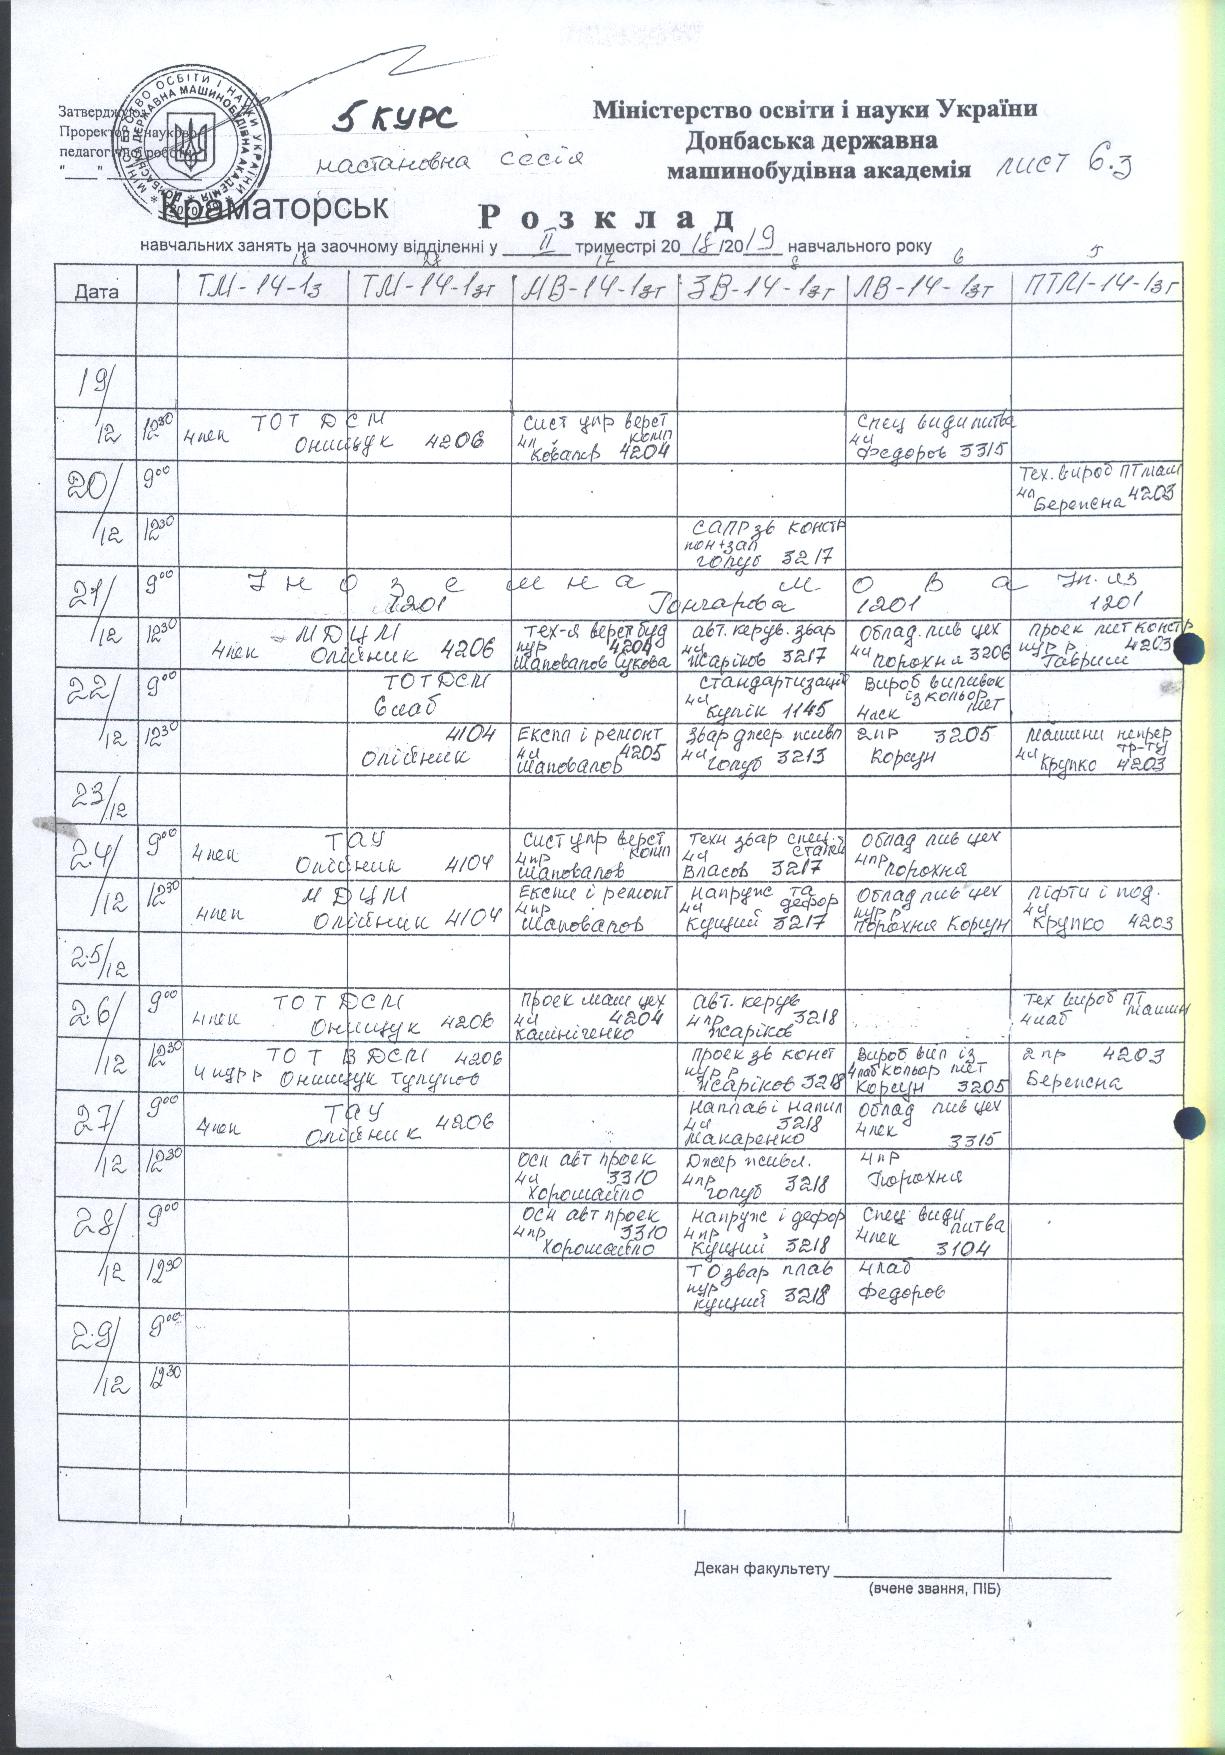 Затверджую
Проректор з науково-
педагогічної роботи
"___" ___
5 КУРС
настановна сесія
Міністерство освіти і науки України
Донбаська державна
машинобудівна академія
лист 6.3
Краматорськ
Розклад
навчальних занять на заочному відділенні у II триместрі 2018/2019 навчального року
18 28 17 8 6 5
Дата ТМ-14-1з ТМ-14-1зт МВ-14-1зт ЗВ-14-1зт ЛВ-14-1зт ПТМ-14-1зт
19/12
12 30
ТОТ ДСМ
4лек Онищук 4206
Сист упр верст
комп
Ковалев 4204
Спец види литва
4ч
Федоров 3315
20/12
9 00
Тех. вироб ПТ маш
4л Березна 4203
12 30
САПР зв констр
голуб 3217
21/12
9 00
Іноземна мова
1201 Гончарова 1201
Ін. из
1201
12 30
МДЦМ
4лек Олійник 4206
Тех-я верст буд
кур 4204
Шаповалов
авт. керув. звар
4ч
Жаріков 3217
Облад. лив цех
4ч Порохня 3206
Проек мет констр
кур р. 4203
Гавриш
22/12
9 00
ТОТ ДСМ
6лаб
Стандартизація
4ч
Кулік 1145
Вироб виливок
із кольор
4лек мет
12 30
4104
Олійник
Експл і ремонт
4ч 4205
Шаповалов
Звар джер живл
4ч
Голуб 3213
2пр 3205
Корсун
Машини непрер
тр-ту
4ч
Крупко 4203
23/12
24/12
9 00
ТАУ
4лек Олійник 4104
Сист упр верст
4пр комп
Шаповалов
Техн звар спец.
4ч сталей
Власов 3217
Облад лив цех
4пр
Порохня
12 30
МДЦМ
4лек Олійник 4104
Експл і ремонт
4пр
Шаповалов
Напруж та
4ч дефор
Кущий 3217
Облад лив цех
кур р
Порохня Корсун
Ліфти і под.
4ч
Крупко 4203
25/12
26/12
9 00
ТОТ ДСМ
4лек Онищук 4206
Проек маш цех
4ч 4204
Калініченко
Авт. керув
4пр 3218
Жаріков
Тех вироб ПТ
4лаб машин
12 30
ТОТ В ДСМ 4206
4 кур р Онищук Тулупов
Проек зв конст
кур р
Жаріков 3218
Вироб вил із
4лаб кольор мет
Корсун 3205
2 пр 4203
Березна
27/12
9 00
ТАУ
4лек Олійник 4206
Наплав і напил
4ч 3218
Макаренко
Облад лив цех
4лек
3315
12 30
Осн авт проек
4ч 3310
Хорошайло
Джер живл.
4пр
Голуб 3218
4пр
Порохня
28/12
9 00
Осн авт проек
4пр 3310
Хорошайло
Напруж і дефор
4пр
Кущий 3218
Спец види
литва
4лек
3104
12 30
ТО звар плав
кур
Кущий 3218
4лаб
Федоров
29/12
9 00
12 30
Декан факультету
(вчене звання, ПІБ)